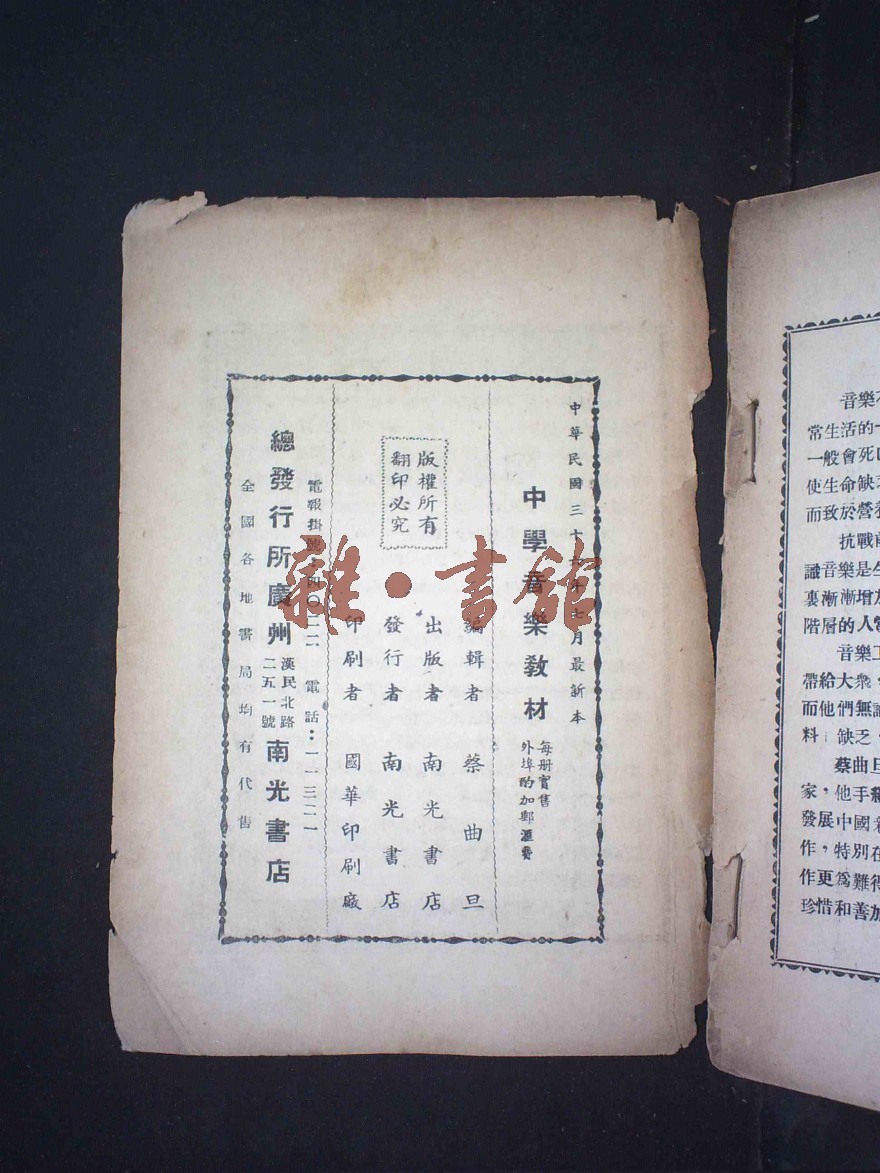 中華民國三十六年七月最新本
中學音樂教材
每册實售
外埠酌加郵滙費
版權所有
翻印必究
編輯者 蔡曲旦
出版者 南光書店
發行者 南光書店
印刷者 國華印刷廠
電報掛號：四〇二二 電話：一一三二一
總發行所廣州漢民北路二五一號南光書店
全國各地書局均有代售
雜·書館
音樂不
常生活的一
一般會死
使生命缺
而致於營養
抗戰前
識音樂是生
裏漸漸增加
階層的人
音樂工
帶給大衆，
而他們無論
料，缺乏，
蔡曲旦
家，他手編
發展中國
作，特別在
作更爲難得
珍惜和善加